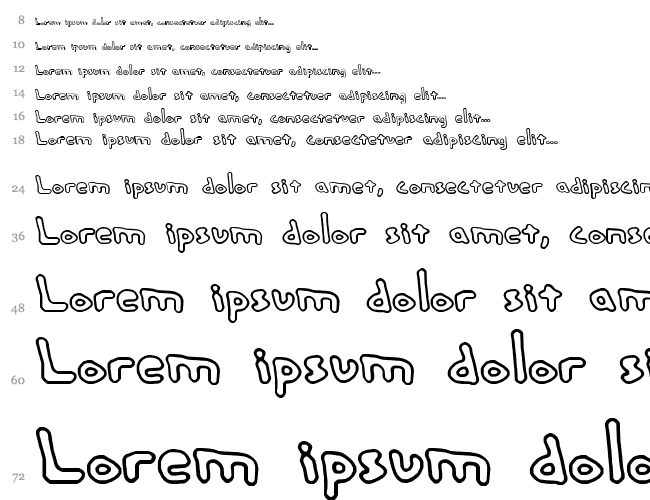 8 Lorem ipsum dolor sit amet, consectetuer adipiscing elit...
10 Lorem ipsum dolor sit amet, consectetuer adipiscing elit...
12 Lorem ipsum dolor sit amet, consectetuer adipiscing elit...
14 Lorem ipsum dolor sit amet, consectetuer adipiscing elit...
16 Lorem ipsum dolor sit amet, consectetuer adipiscing elit...
18 Lorem ipsum dolor sit amet, consectetuer adipiscing elit...
24 Lorem ipsum dolor sit amet, consectetuer adipiscin
36 Lorem ipsum dolor sit amet, conse
48 Lorem ipsum dolor sit am
60 Lorem ipsum dolor si
72 Lorem ipsum dolo